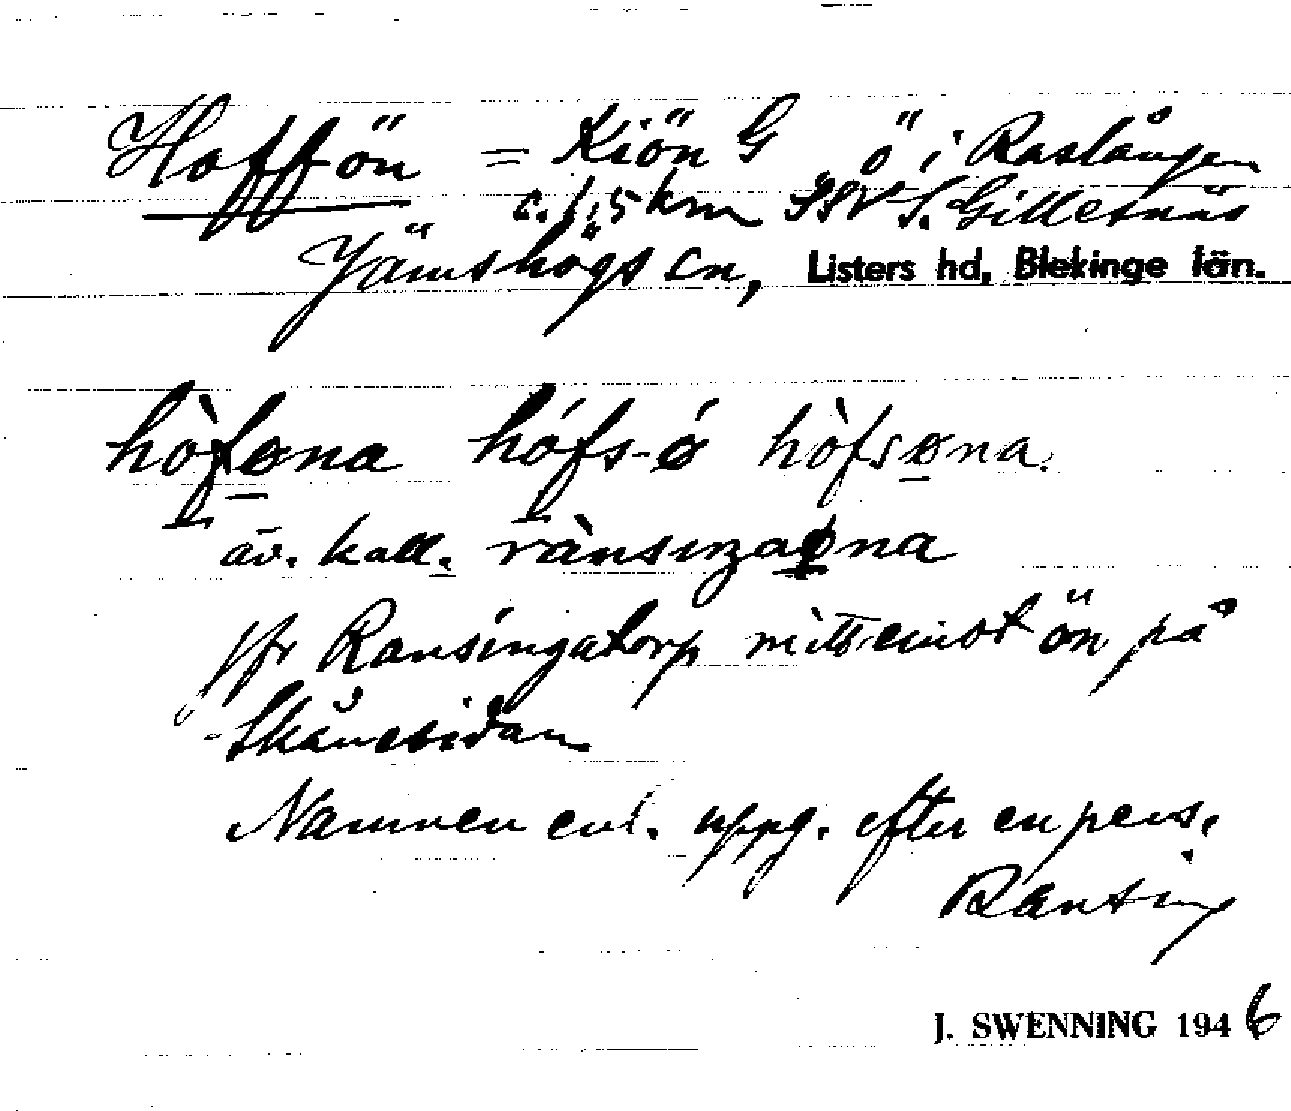 Hoffön = Kiön G ö i Raslången
c. 1,5 km SSV S. Gillesnäs
Jämshögs sn, Listers hd, Blekinge län.
hòføna hófs-ø hòfsøna.
äv. kall. rànsıŋaøna
jfr Ransingatorp mitt emot ön på
Skånesidan
Namnen enl. uppg. efter en pers.
Ransing
J. SWENNING 1946